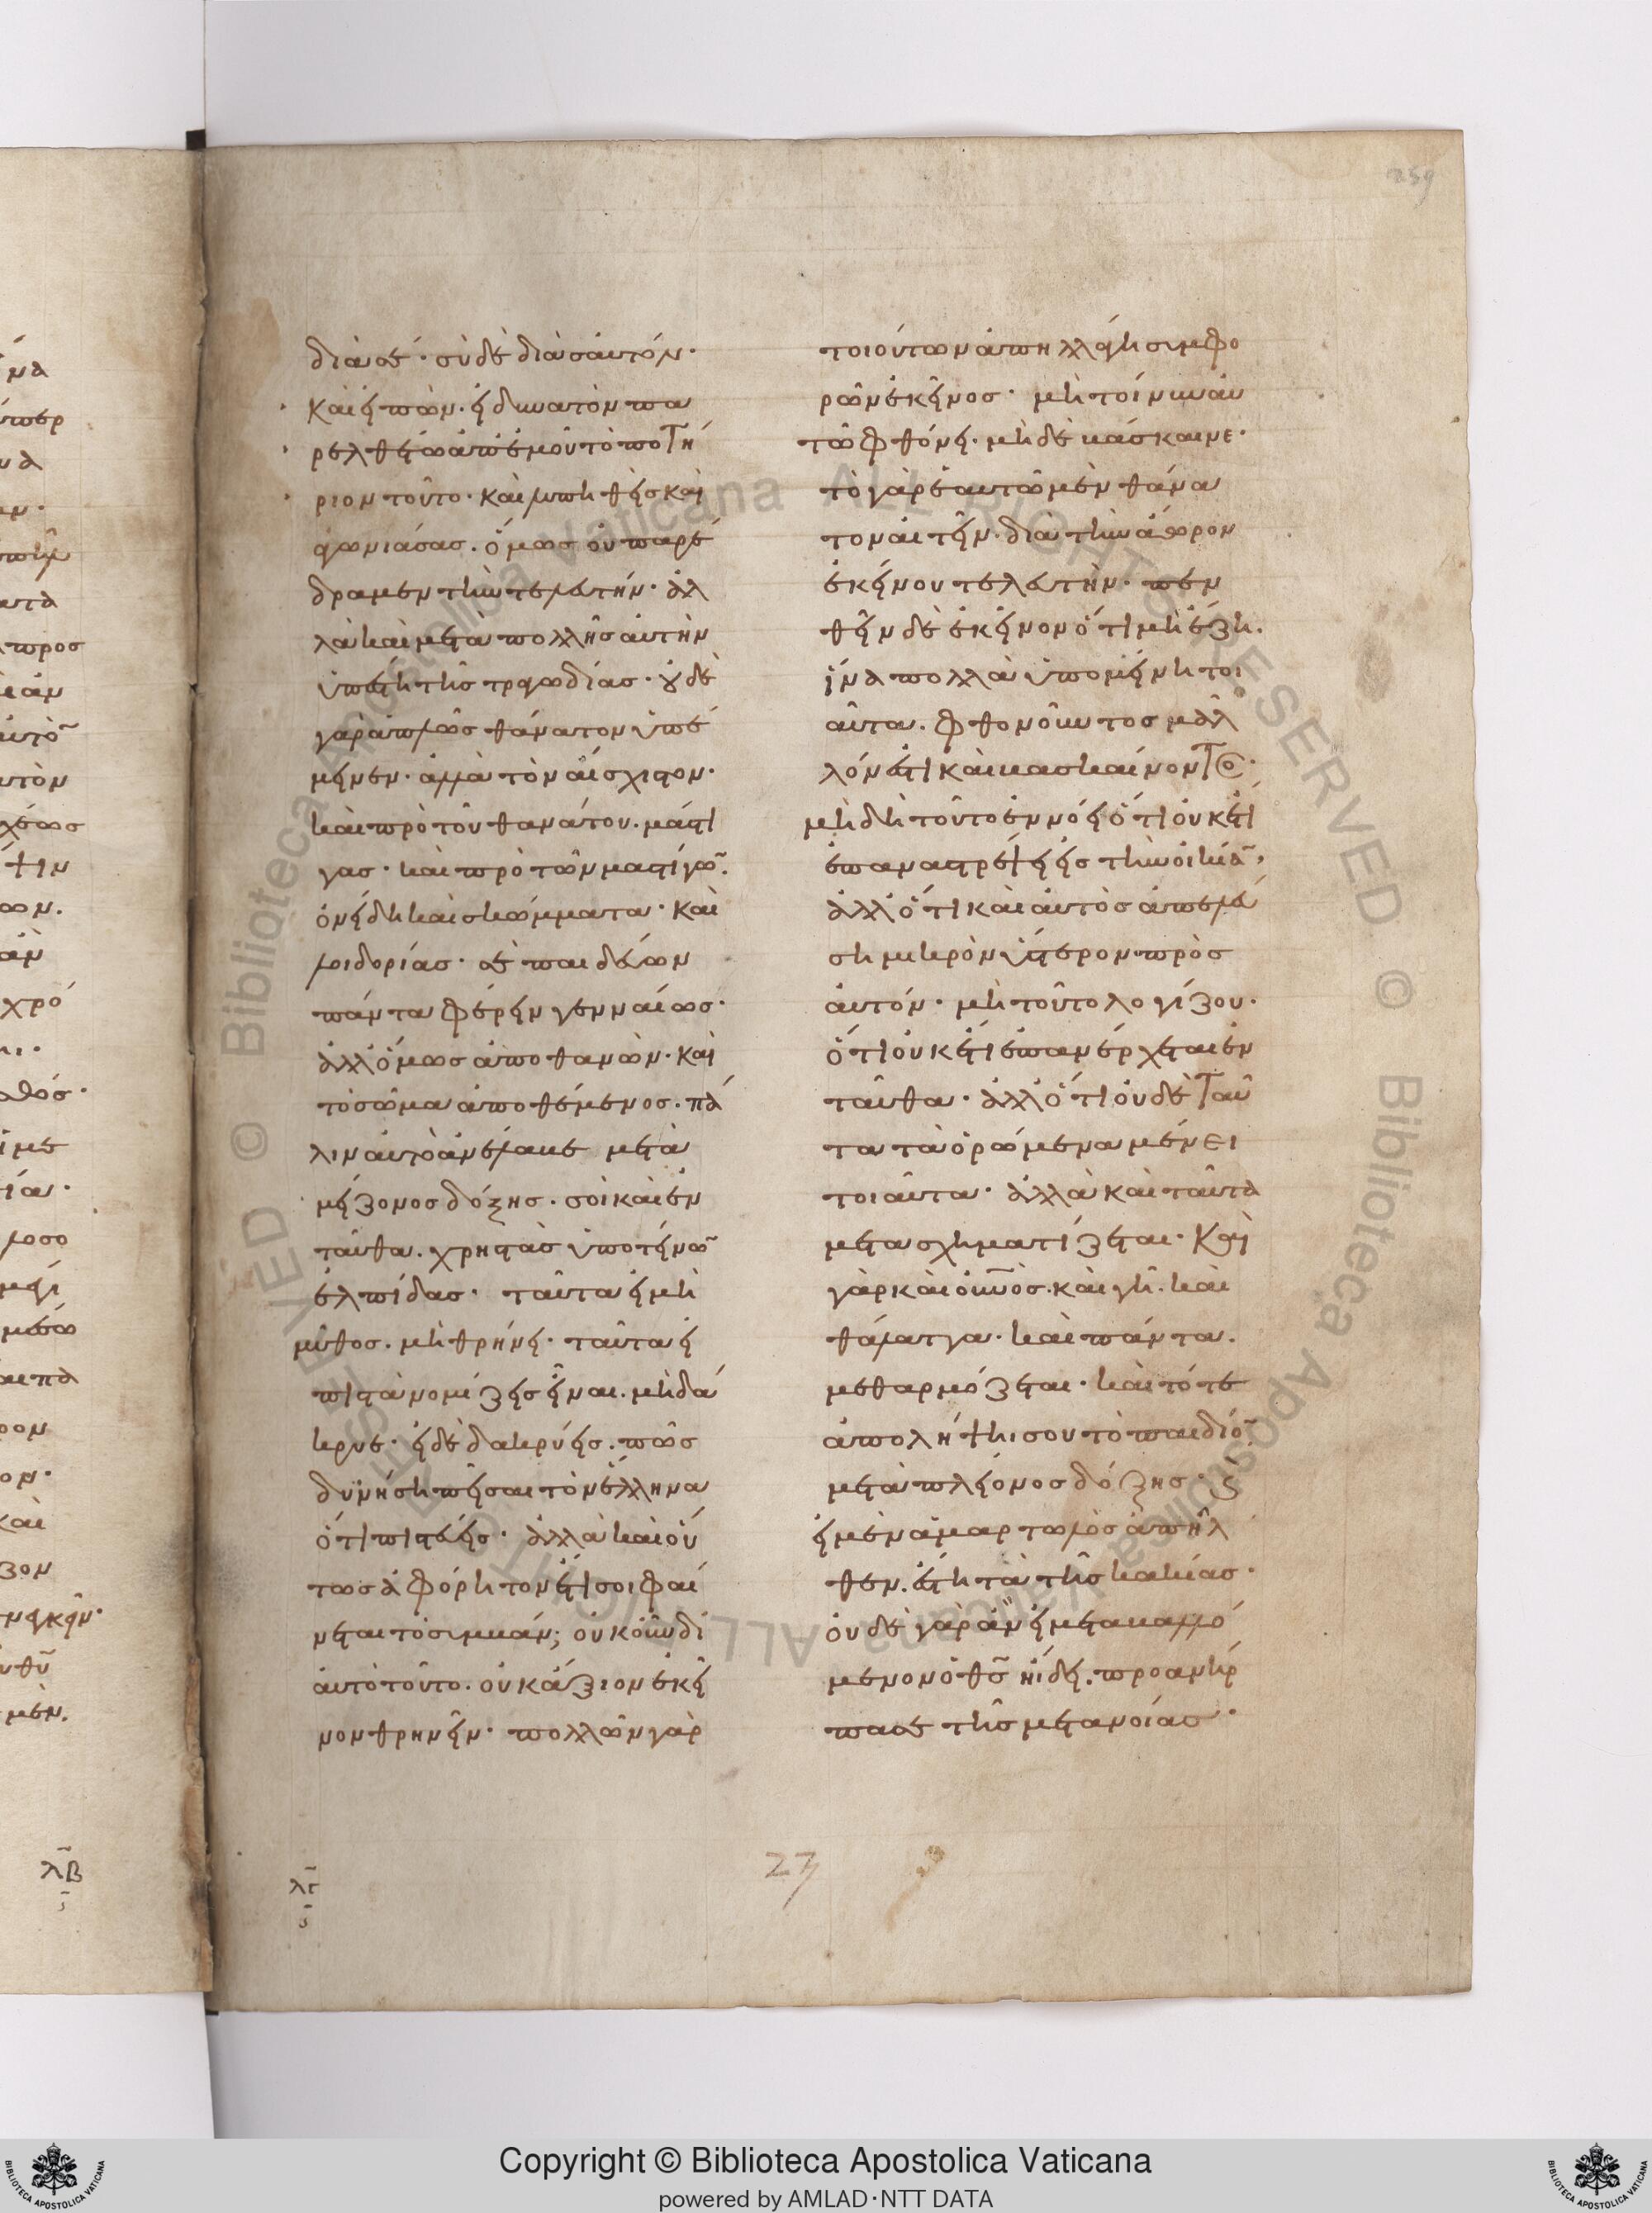 259
διὰ σέ· σὺ δὲ διὰ σαυτόν·
Καὶ εἰπὼν· εἰ δυνατὸν πα
ρελθέτω ἀπ' ἐμοῦ τὸ ποτή
ριον τοῦτο· καὶ λυπηθεὶς καὶ
ἀγωνιάσας· ὅμως οὐ παρέ
δραμεν τὴν τελευτήν· ἀλ
λὰ καὶ μετὰ πολλῆς αὐτὴν
ὑπέστη τῆς τραγωδίας· οὐδὲ
γὰρ ἁπλῶς θάνατον ὑπέ
μεινεν· ἀλλὰ τὸν αἴσχιστον·
καὶ πρὸ τοῦ θανάτου· μάστι
γας· καὶ πρὸ τῶν μαστίγω̃·
ὀνείδη καὶ σκώμματα· καὶ
λοιδορίας· σὲ παιδεύων
πάντα φέρειν γενναίως·
ἀλλ' ὅμως ἀποθανὼν· καὶ
τὸ σῶμα ἀποθέμενος· πά
λιν αὐτὸ ἀνέλαβε μετὰ
μείζονος δόξης· σοὶ καὶ ἐν
ταῦθα· χρηστὰς ὑποτείνω̃
ἐλπίδας· ταῦτα εἰ μὴ
μῦθος· μὴ θρήνει· ταῦτα εἰ
πιστὰ νομίζεις εἶναι· μὴ δά
κρυε· εἰ δὲ δακρύεις· πῶς
δυνήση πεῖσαι τὸν ἕλληνα
ὅτι πιστεύεις· ἀλλὰ καὶ οὕ
τως ἀφόρητον ἔτι σοι φαί
νεται τὸ συμβάν; οὐκοῦν δι'
αὐτὸ τοῦτο· οὐκ ἄξιον ἐκεῖ
νον θρηνεῖν· πολλῶν γὰρ
τοιούτων ἀπηλλάγη συμφο
ρῶν ἐκεῖνος· μὴ τοίνυν αὐ
τῶ φθόνει· μὴ δὲ βάσκαινε·
τὸ γὰρ ἑαυτῶ μὲν θάνα
τον αἰτεῖν· διὰ τὴν ἄωρον
ἐκείνου τελευτὴν· πεν
θεῖν δὲ ἐκεῖνον ὅτι μὴ ἔζη·
ἵνα πολλὰ ὑπομείνη τοι
αῦτα· φθονοῦντος μᾶλ
λόν ἐστι καὶ βασκαίνοντος·
μὴ δὴ τοῦτο ἐννόει ὅτι οὐκέτι
ἐπαναστρέψει εἰς τὴν οἰκία̃,
ἀλλ' ὅτι καὶ αὐτὸς ἀπελεύ
ση μικρὸν ὕστερον πρὸς
αὐτόν· μὴ τοῦτο λογίζου·
ὅτι οὐκέτι ἐπανέρχεται ἐν
ταῦθα· ἀλλ' ὅτι οὐδὲ ταῦ
τα τὰ ὁρώμενα μένει
τοιαῦτα· ἀλλὰ καὶ ταῦτα
μετασχηματίζεται· Καὶ
γὰρ καὶ οὐνὸς· καὶ γῆ· καὶ
θάλαττα· καὶ πάντα·
μεθαρμόζεται· καὶ τότε
ἀπολήψη σου τὸ παιδίο̃
μετὰ πλείονος δόξης· ϗ
εἰ μὲν ἁμαρτωλὸς ἀπῆλ
θεν· ἔστη τὰ τῆς κακίας·
οὐδὲ γὰρ ἂν εἰ μεταβαλλό
μενον ὁ θς ἤδει· προανήρ
πασε τῆς μετανοίας·
λγ
ς
27
λβ
ς